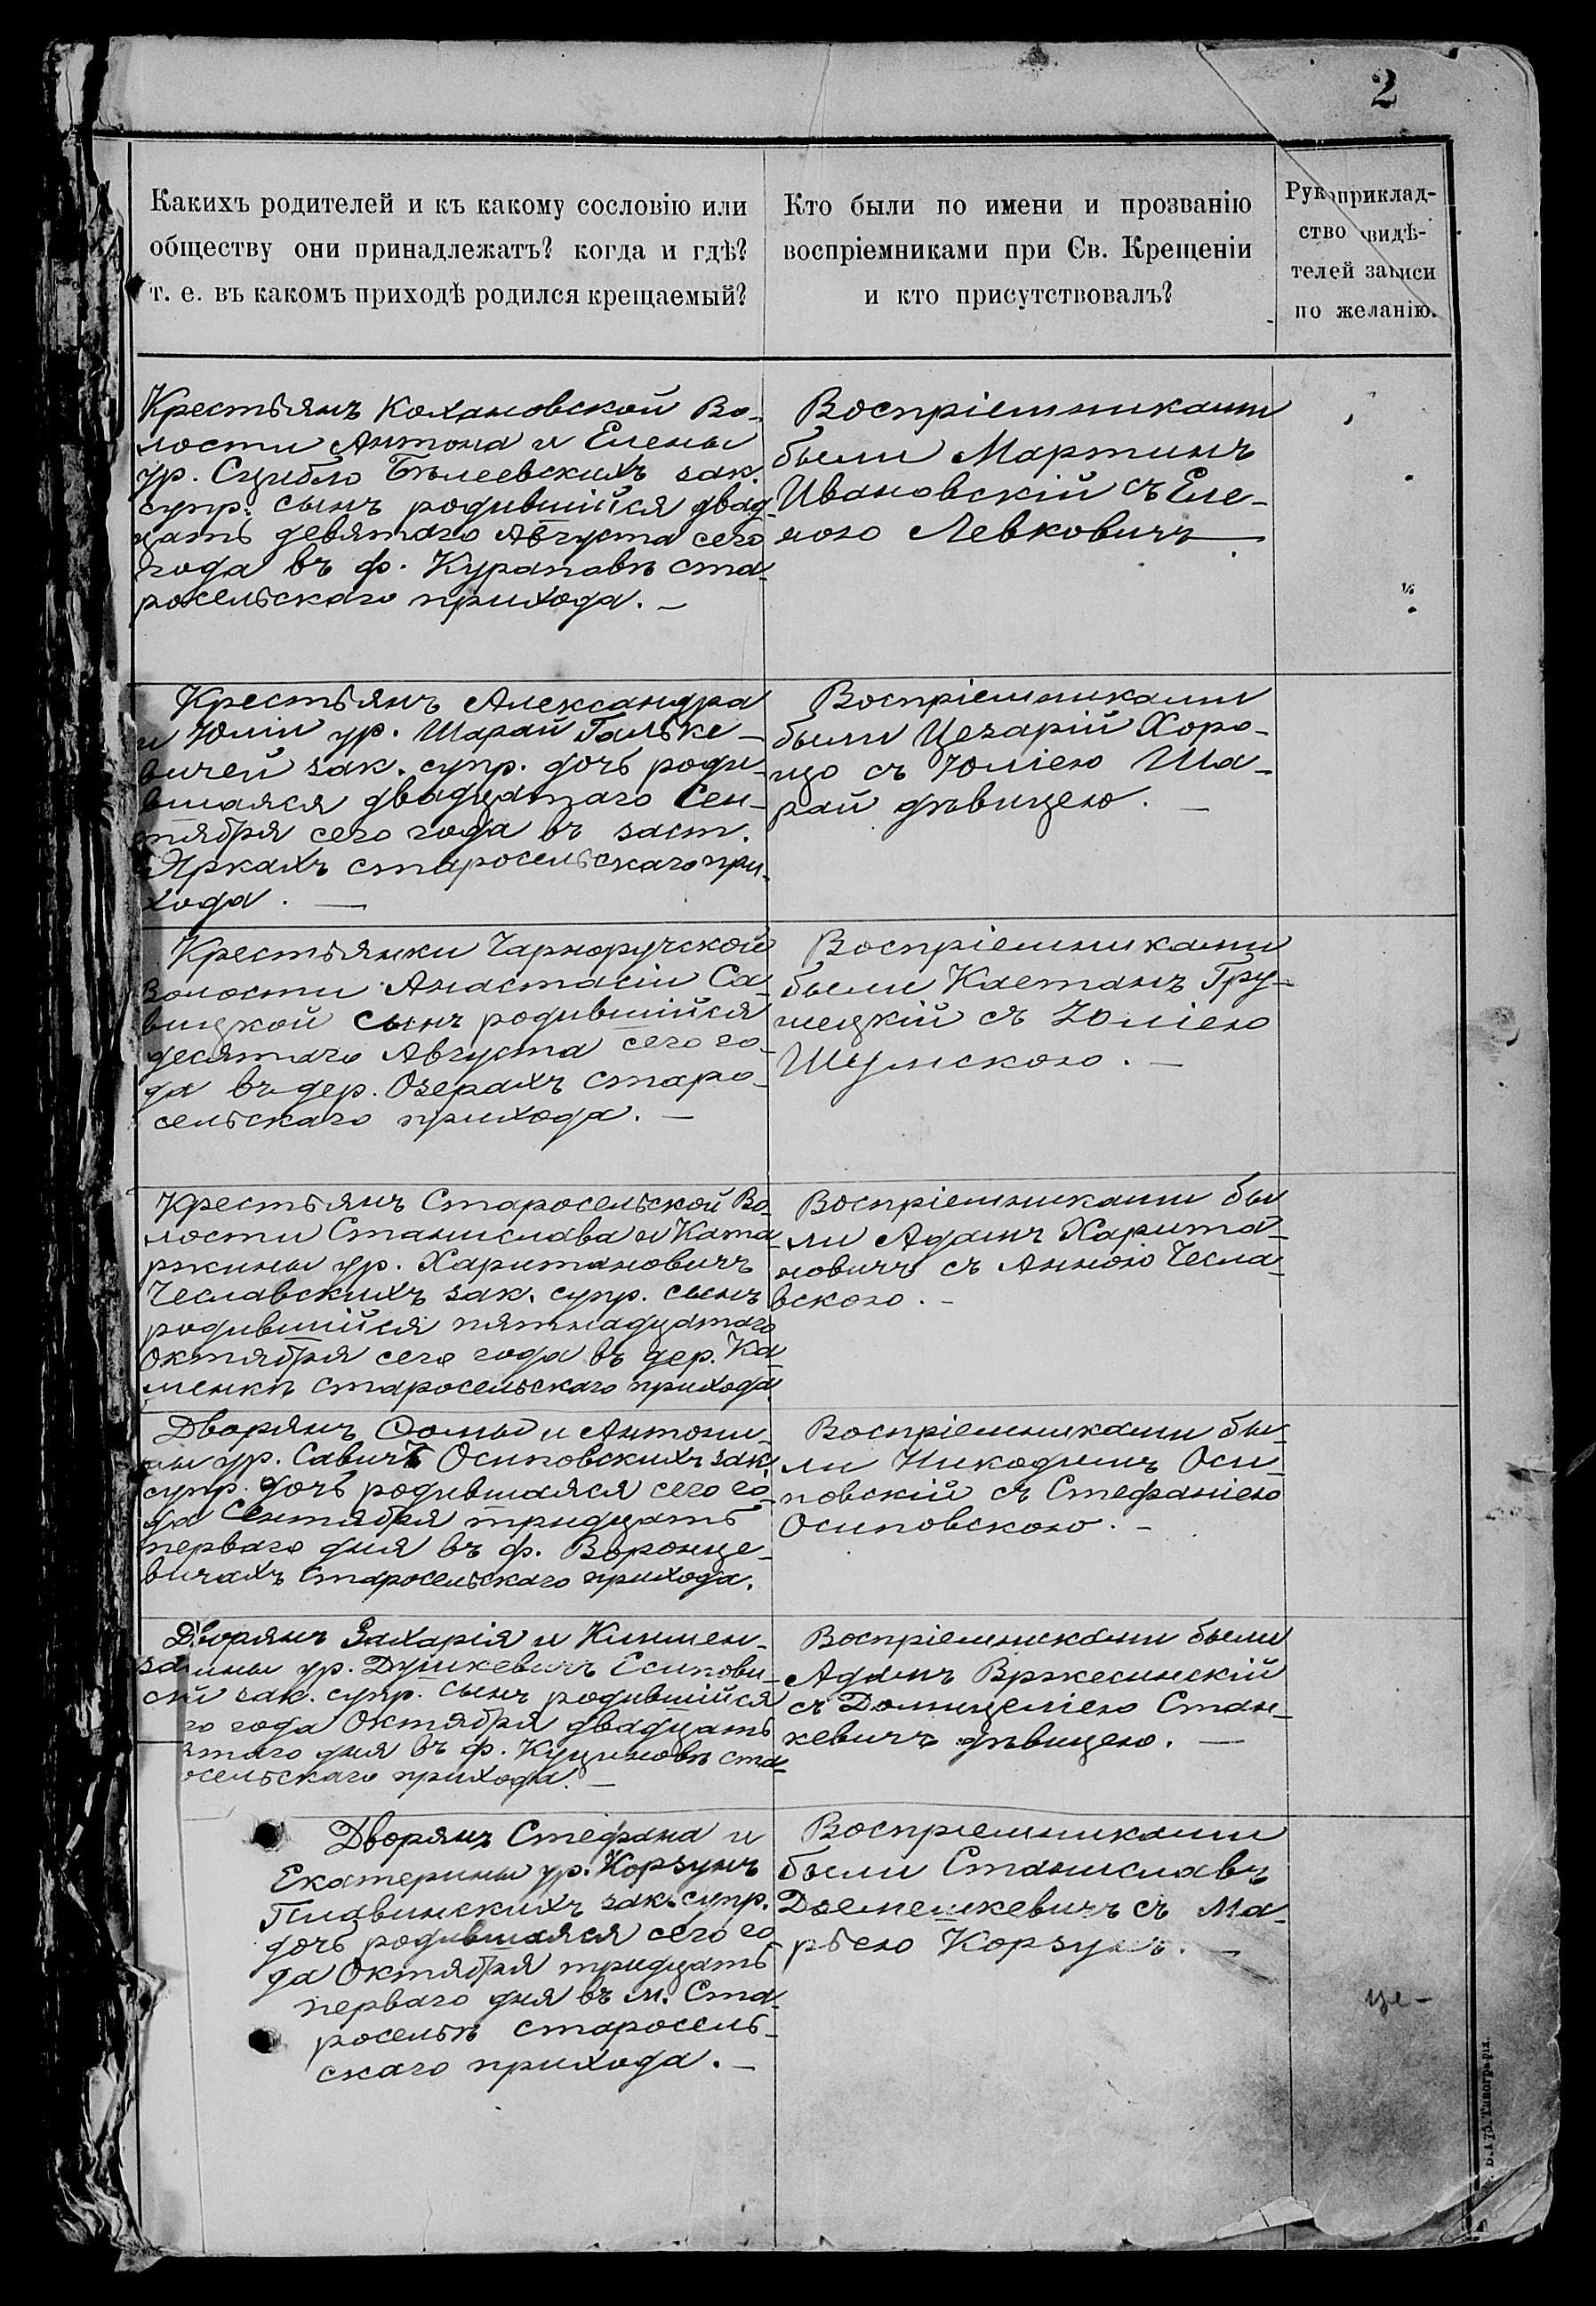 2
Какихъ родителей и къ какому сословію или
обществу они принадлежатъ? когда и гдѣ?
т. е. въ какомъ приходѣ родился крещаемый?
Кто были по имени и прозванію
воспріемниками при Св. Крещеніи
и кто присутствовалъ?
Рукоприклад-
ство свидѣ-
телей записи
по желанію.
Крестьянъ Кохановской Во-
лости Антона и Елены
ур. Сцибло Бѣлеевскихъ зак.
супр. сынъ родившійся двад-
цать девятаго Августа сего
года въ ф. Курапавѣ ста-
росельскаго прихода. —
Воспріемниками
были Мартинъ
Ивановскій съ Еле-
ною Левковичъ
Крестьянъ Александра
и Юліи ур. Шарай Гальке-
вичей зак. супр. дочь роди-
вшаяся двадцатаго Сен-
тября сего года въ заст.
Яркахъ старосельскаго при-
хода. —
Воспріемниками
были Цезарій Хоро-
що съ Юліею Ша-
рай дѣвицею. —
Крестьянки Чарноручской
волости Анастасіи Са-
вицкой сынъ родившійся
десятаго Августа сего го-
да въ дер. Озерахъ старо-
сельскаго прихода. —
Воспріемниками
были Каетанъ Гру-
шецкій съ Юліею
Шумскою. —
Крестьянъ Старосельской Во-
лости Станислава и Ката-
ржины ур. Харитановичъ
Чеславскихъ зак. супр. сынъ
родившійся пятнадцатаго
Октября сего года въ дер. Ка-
менкѣ старосельскаго прихода.
Воспріемниками бы-
ли Адамъ Харита-
новичъ съ Анною Чесла-
вскою. —
Дворянъ Ѳомы и Антони-
ны ур. Савичъ Осиповскихъ зак.
супр. дочь родившаяся сего го-
да Сентября тридцать
перваго дня въ ф. Воронце-
вичахъ старосельскаго прихода.
Воспріемниками бы-
ли Никодимъ Оси-
повскій съ Стефаніею
Осиповскою. —
Дворянъ Захарія и
ур. Душкевичъ
зак. супр. сынъ родившійся
го года Октября двадцать
таго дня въ ф. Куциновѣ ста-
осельскаго прихода. —
Воспріемниками были
Адамъ Вржесинскій
съ Домицеліею Стан-
кевичъ дѣвицею. —
Дворянъ Стефана и
Екатерины ур. Корзунъ
Пилавинскихъ зак. супр.
дочь родившаяся сего го-
да Октября тридцать
перваго дня въ м. Ста-
росельѣ старосель-
скаго прихода. —
Воспріемниками
были Станиславъ
съ Ма-
рьею Корзунъ. —
це-